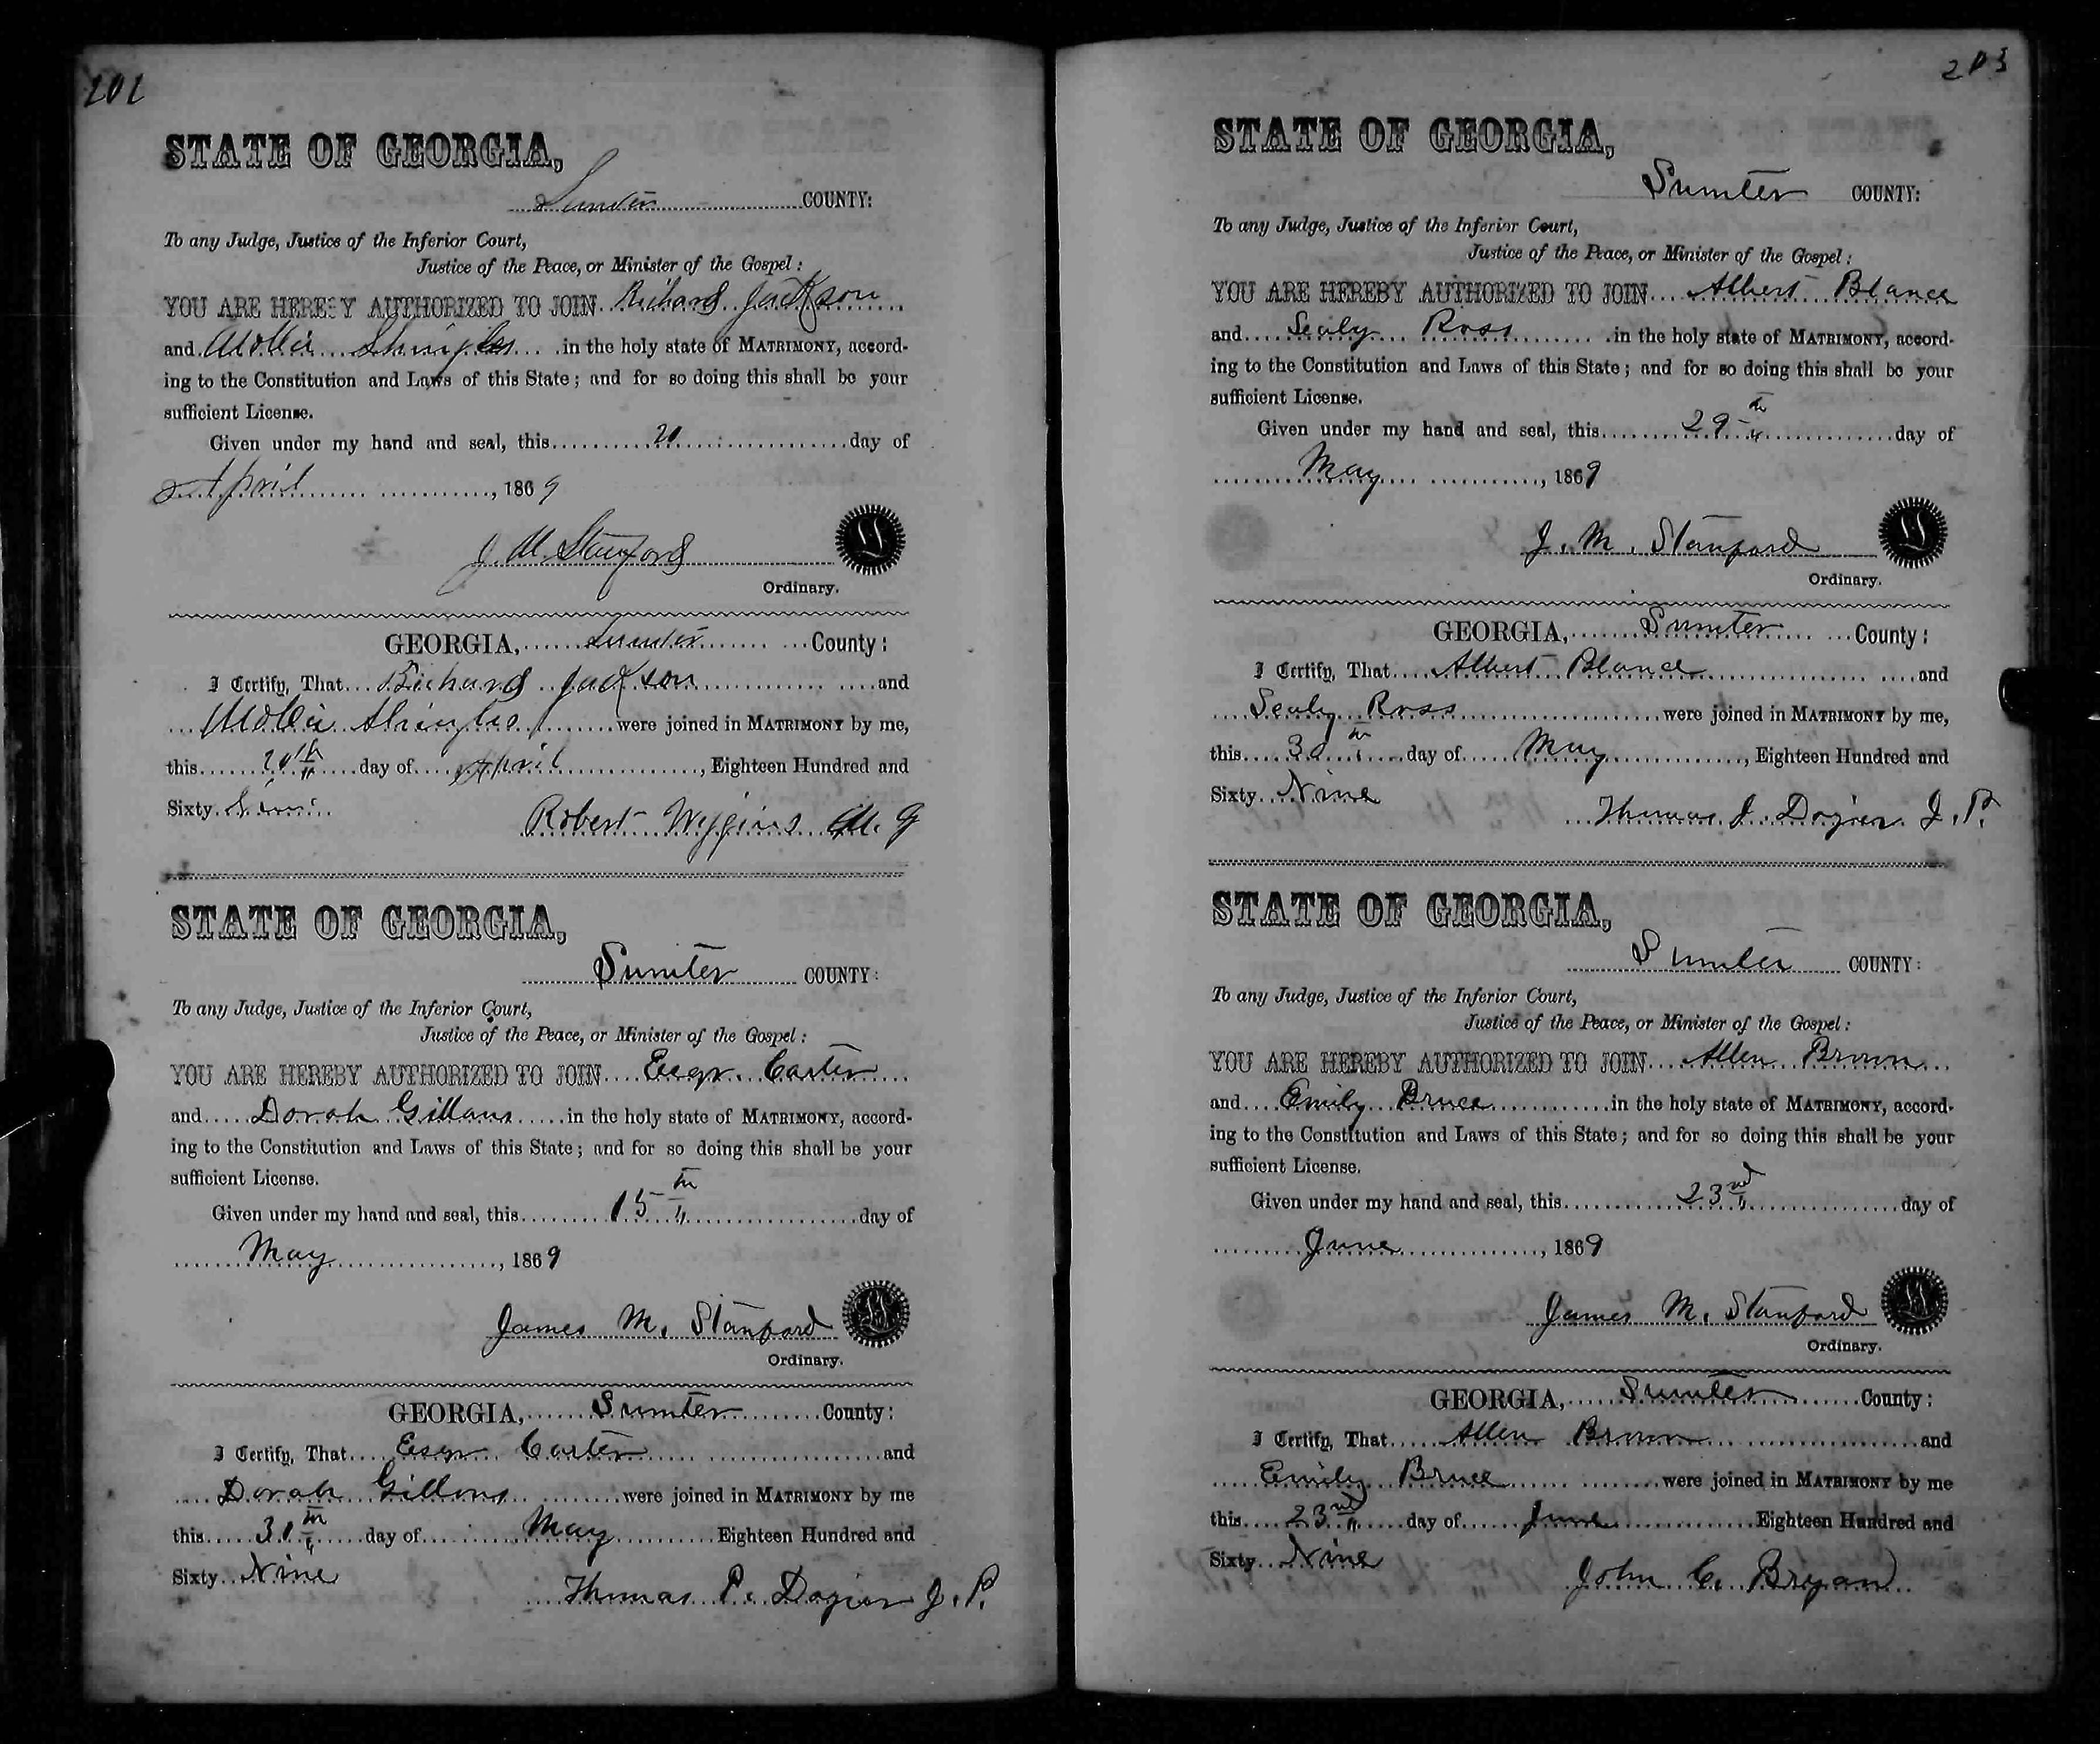 202
STATE OF GEORGIA,
Sumter COUNTY:
To any Judge, Justice of the Inferior Court,
Justice of the Peace, or Minister of the Gospel:
YOU ARE HEREBY AUTHORIZED TO JOIN Richard Jackson
and Mollie Shingles in the holy state of MATRIMONY, accord-
ing to the Constitution and Laws of this State; and for so doing this shall be your
sufficient License.
Given under my hand and seal, this day of
April, 1869
J. M. Stanford
Ordinary.
GEORGIA, Sumter County:
I Certify, That Richard Jackson and
Mollie Shingles were joined in MATRIMONY by me,
this day of April, Eighteen Hundred and
Sixty
Robert Wiggins M. G
STATE OF GEORGIA,
Sumter COUNTY:
To any Judge, Justice of the Inferior Court,
Justice of the Peace, or Minister of the Gospel:
YOU ARE HEREBY AUTHORIZED TO JOIN Carter
and Dorah Gillans in the holy state of MATRIMONY, accord-
ing to the Constitution and Laws of this State; and for so doing this shall be your
sufficient License.
Given under my hand and seal, this 15th day of
May, 1869
James M. Stanford
Ordinary.
GEORGIA, Sumter County:
I Certify, That Carter and
Dorah Gillons were joined in MATRIMONY by me
this day of May Eighteen Hundred and
Sixty Nine
Thomas P. Dozier J. P.
203
STATE OF GEORGIA,
Sumter COUNTY:
To any Judge, Justice of the Inferior Court,
Justice of the Peace, or Minister of the Gospel:
YOU ARE HEREBY AUTHORIZED TO JOIN Albert Blance
and Sealy Ross in the holy state of MATRIMONY, accord-
ing to the Constitution and Laws of this State; and for so doing this shall be your
sufficient License.
Given under my hand and seal, this 29th day of
May, 1869
J. M. Stanford
Ordinary.
GEORGIA, Sumter County:
I Certify, That Albert Blance and
Sealy Ross were joined in MATRIMONY by me,
this 30th day of May, Eighteen Hundred and
Sixty Nine
Thomas J. Dozier J. P.
STATE OF GEORGIA,
Sumter COUNTY:
To any Judge, Justice of the Inferior Court,
Justice of the Peace, or Minister of the Gospel:
YOU ARE HEREBY AUTHORIZED TO JOIN Allen Brown
and Emily Bruce in the holy state of MATRIMONY, accord-
ing to the Constitution and Laws of this State; and for so doing this shall be your
sufficient License.
Given under my hand and seal, this 23rd day of
June, 1869
James M. Stanford
Ordinary.
GEORGIA, Sumter County:
I Certify, That Allen Brown and
Emily Bruce were joined in MATRIMONY by me
this 23rd day of June Eighteen Hundred and
Sixty Nine
John C. Bryan